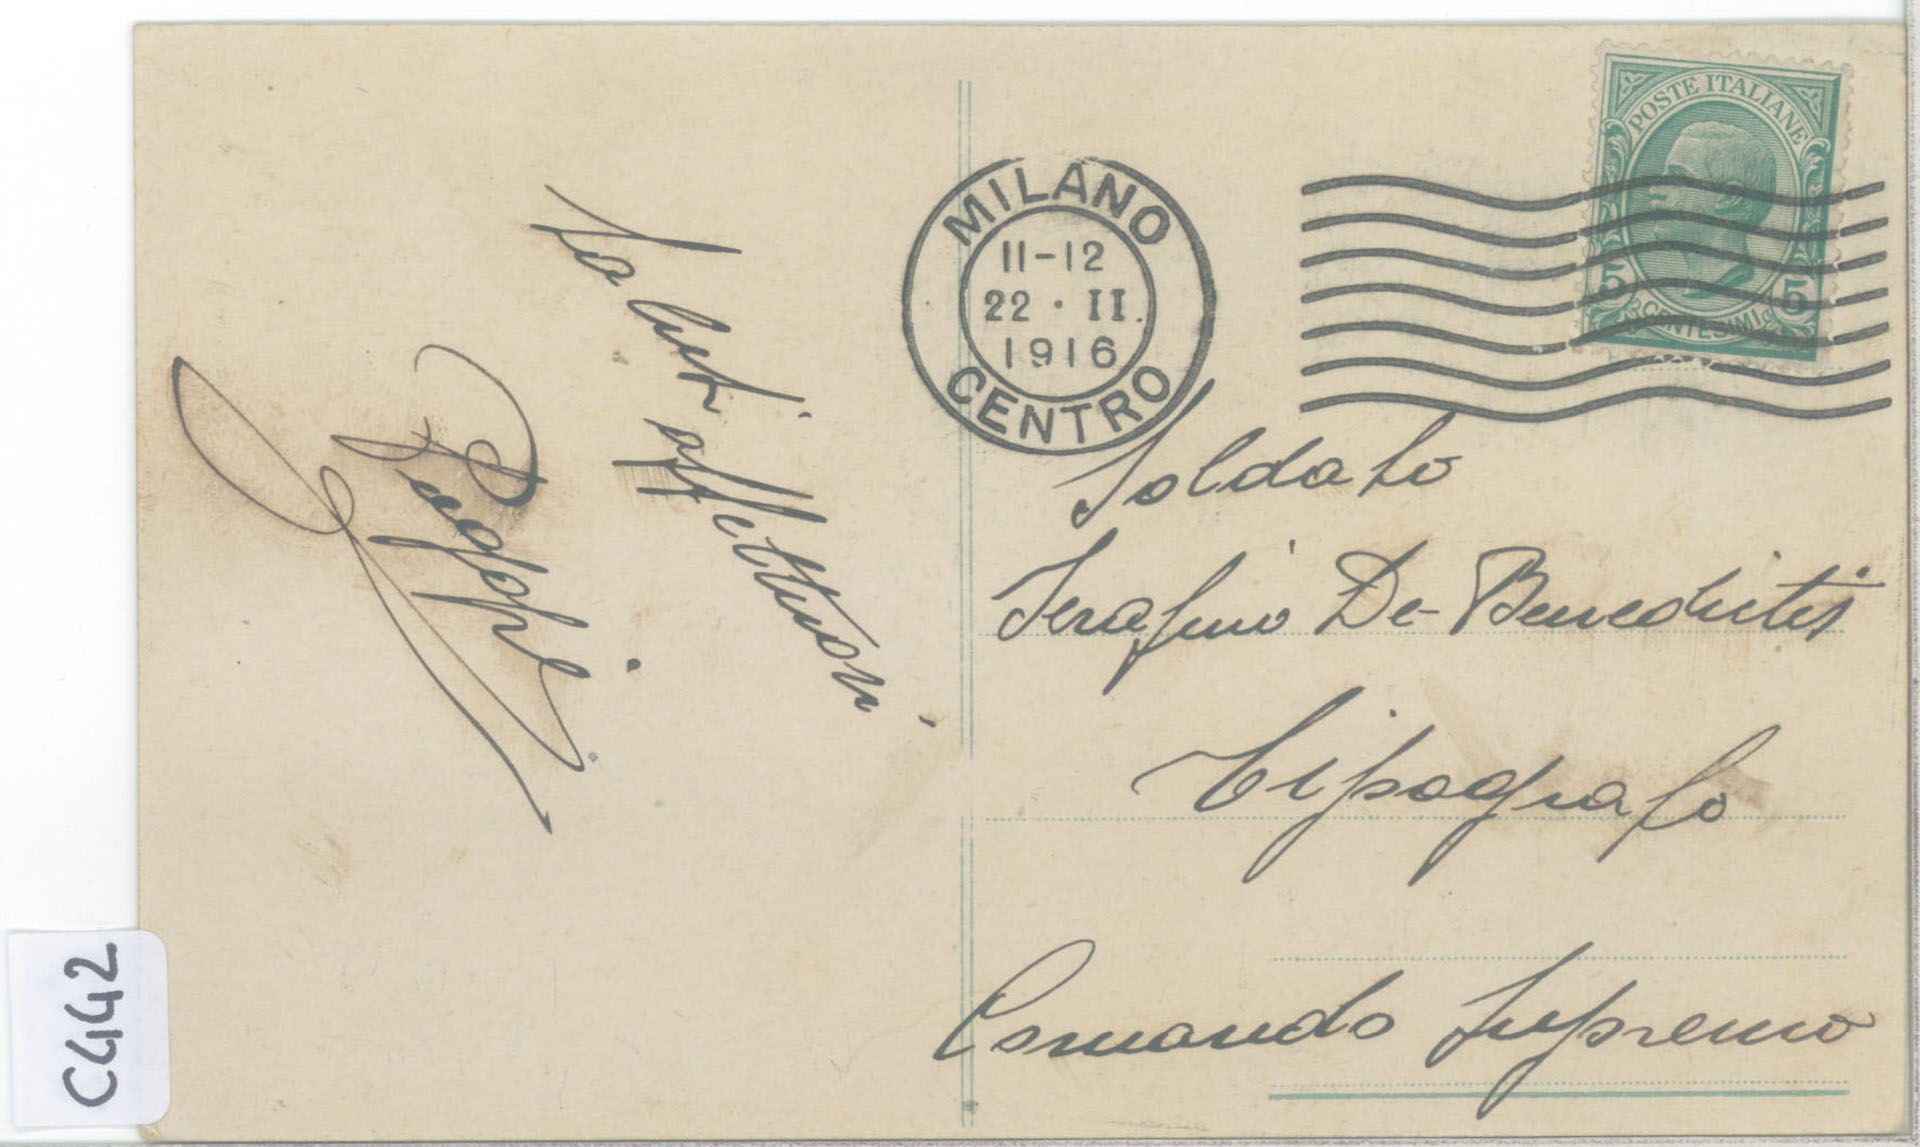 Saluti affettuosi
Peppe
MILANO
11-12
22 · II.
1916
CENTRO
POSTE ITALIANE
5 5
CENTESIMI
Soldato
Serafino De-Benedictis
Tipografo
Comando Supremo
C442